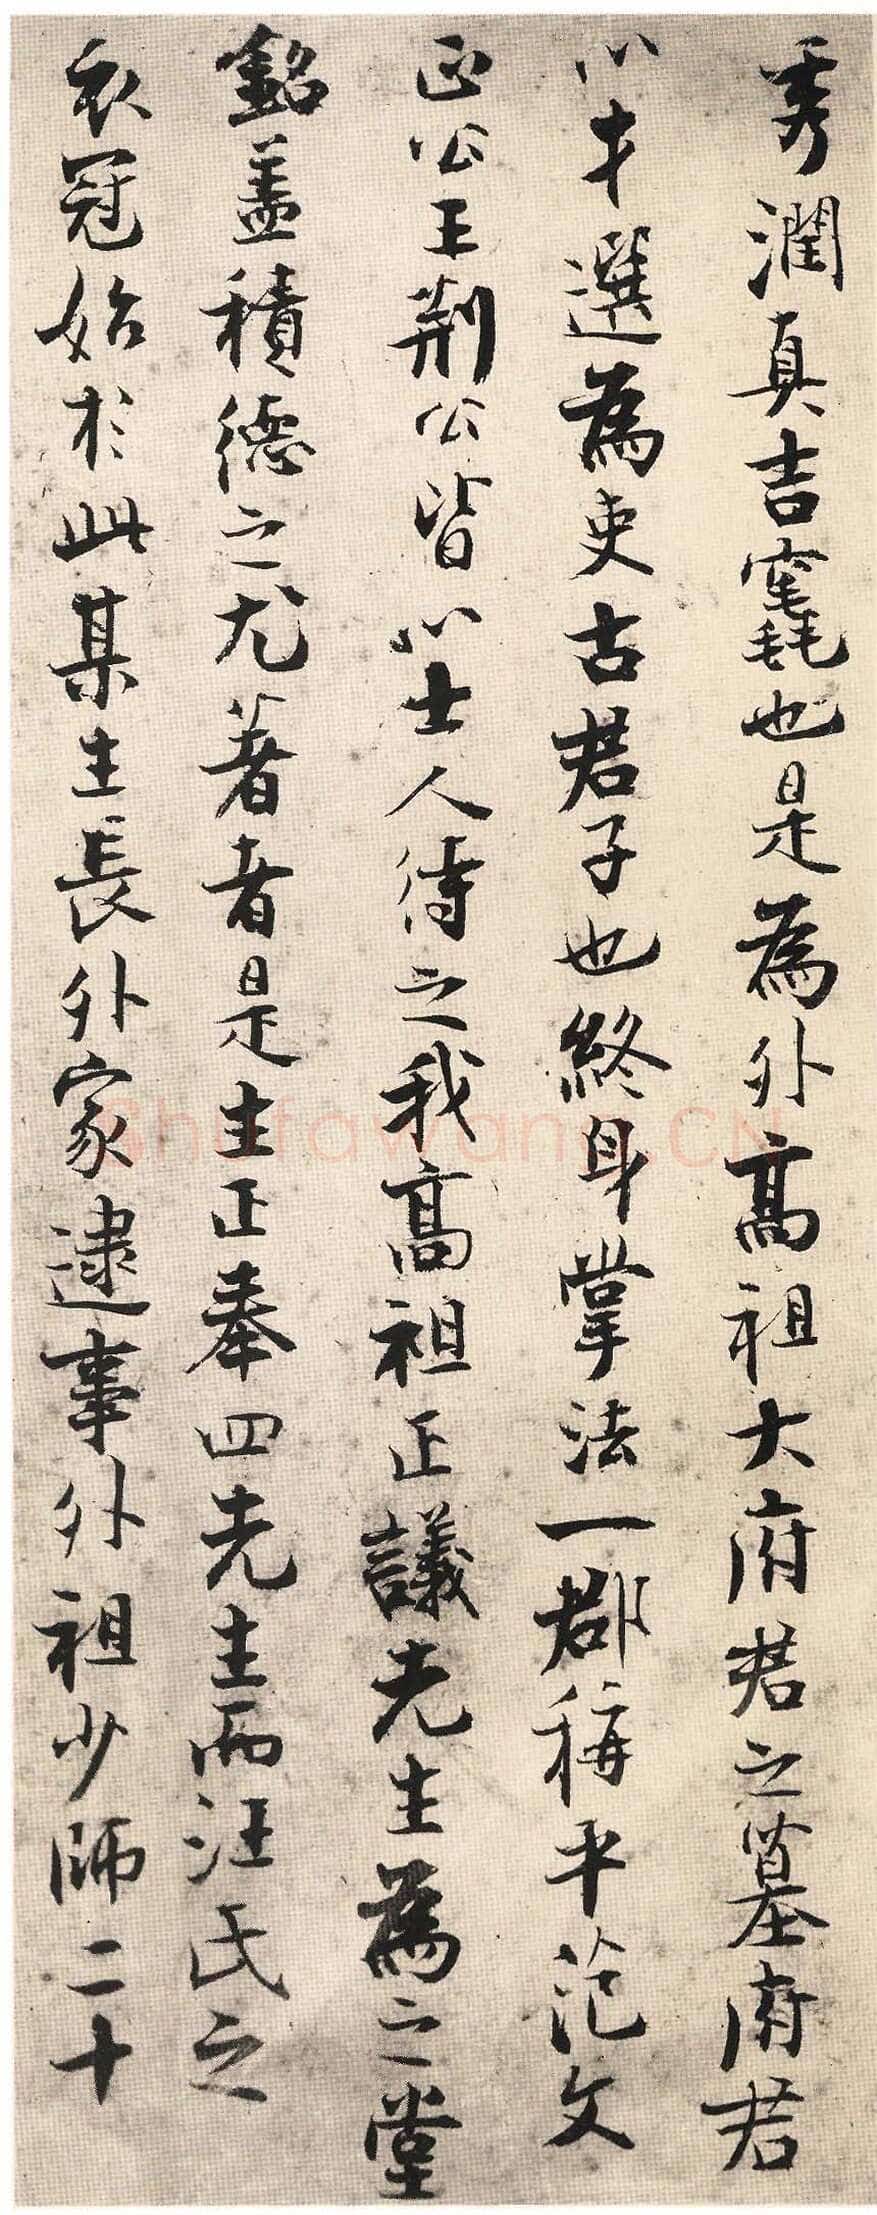 秀潤真吉竁也是為外高祖大府君之墓府君
以才選為吏古君子也終身掌法一郡稱平范文
正公王荆公皆以士人待之我高祖正議先生為之堂
銘盖積德之尤著者是生正奉四先生而汪氏之
衣冠始於此某生長外家逮事外祖少師二十
ShufaWang.CN